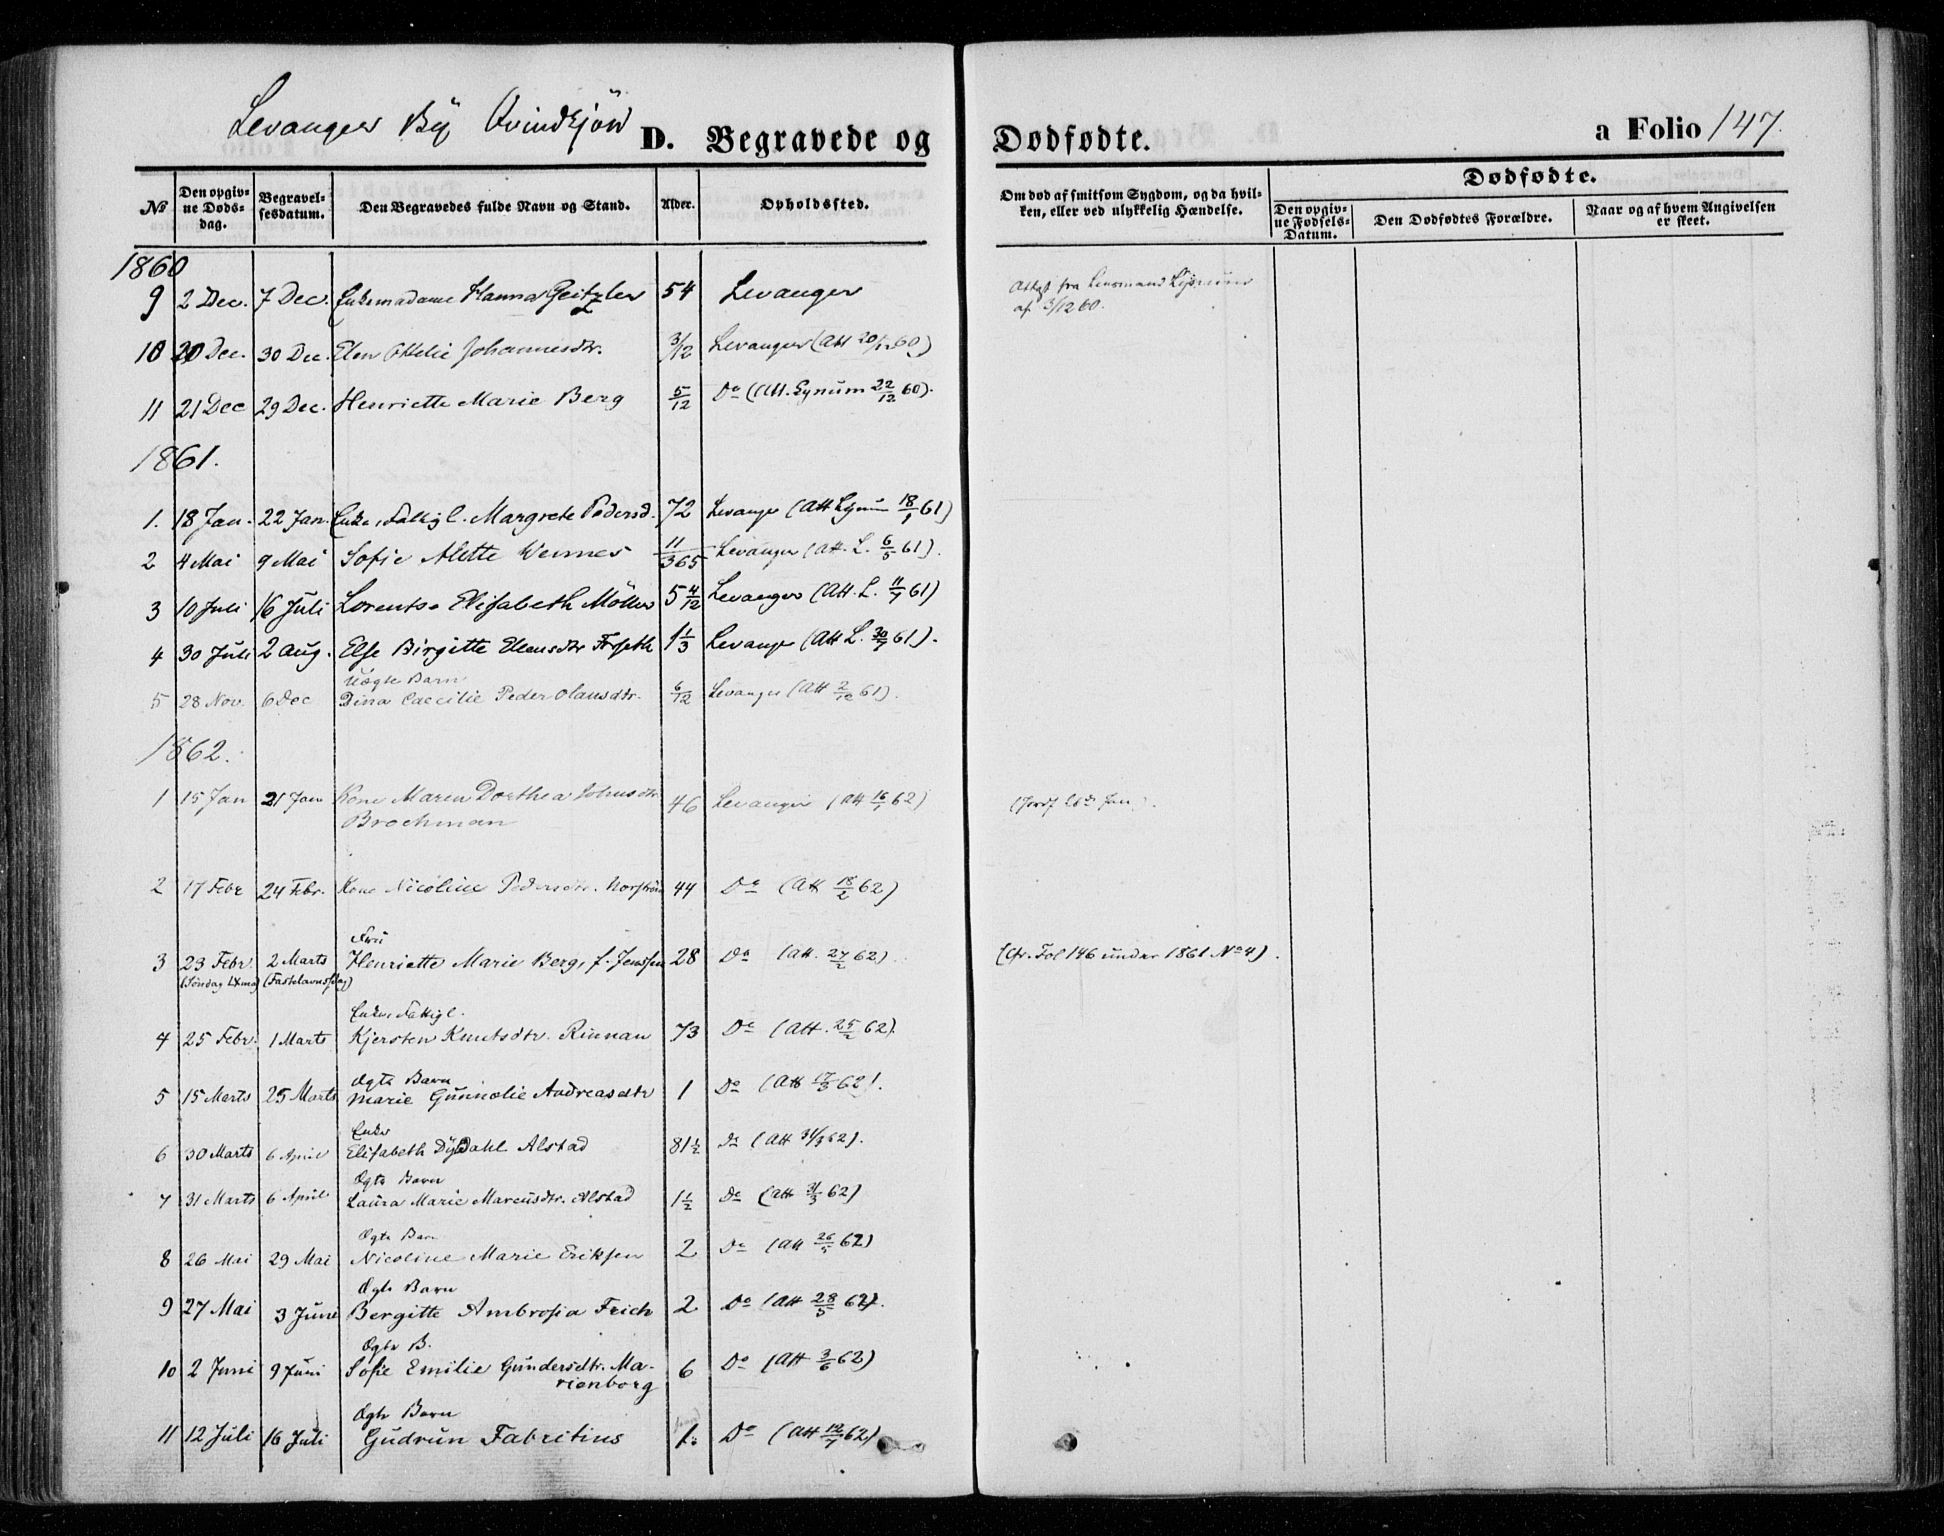 Levanger By Qvindkjön D. Begravede og Dødfødte. a Folio 147.
№ Den opgivne Dødsdag. Begravelsesdatum. Den Begravedes fulde Navn og Stand. Alder. Opholdssted. Om død af smitsom Sygdom, og da hvilken, eller ved ulykkelig Hændelse. Dødfødte. Den opgivne Fødsels-Datum. Den Dødfødtes Forældre. Naar og af hvem Angivelsen er skeet.
1860
9 2 Dec. 7 Dec. Enkemadame Hanna Geitzler 54 Levanger Attest fra Lensmand Lynum
af 3/12 60.
10 20 Dec. 30 Dec. Elen Ottelie Johannesdtr. 3/12 Levanger (Att 20/12 60)
11 21 Dec 29 Dec. Henriette Marie Berg 5/12 Do (Att. Lynum 22/12 60).
1861.
1. 18 Jan. 22 Jan. Enke, Fattigl. Margrete Pedersd. 72 Levanger (Att Lynum 18/1 61)
2 4 Mai 9 Mai Sofie Alette Wennes 11/365 Levanger (Att. L. 6/5 61).
3 10 Juli 16 Juli Lorentse Elisabeth Möller 5 4/12 Levanger (Att. L. 11/7 61)
4 30 Juli 2 Aug. Else Birgitte 1 1/3 Levanger (Att L. 30/7 61).
Uægte Barn
5 28 Nov. 6 Dec Dina Caecilie Peder Olausdtr. 6/12 Levanger (Att 2/12 61).
1862.
1 15 Jan 21 Jan Kone Maren Dorthea Johnsdtr 46 Levanger (Att 16/1 62)
Brochman
2 17 Febr 24 Febr. Kone Nicoline Pedersdtr. 44 Do (Att 18/2 62)
Fru
3 23 Febr. 2 Marts Henriette Marie Berg, f. Jenssen 28 Do (Att. 27/2 62) (Cfr. Fol 146 under 1861 No 4).
(Fastelavnssdag)
Enke, Fattigl.
4 25 Febr. 1 Marts Kjersten Knutsdtr. Rinnan 73 Do (Att. 25/2 62).
Ægte Barn
5 15 Marts 25 Marts Marie Gunnolie Andreasdtr 1 Do (Att 17/3 62).
Enke
6 30 Marts 6 April Elisabeth Dÿdahl Alstad 81 1/2 Do (Att 31/3 62).
Ægte Barn
7 31 Marts 6 April Laura Marie Marcusdtr. Alstad 1 1/2 Do (Att 31/3 62)
Ægte Barn
8 26 Mai 29 Mai Nicoline Marie Eriksen 2 Do (Att 26/5 62)
Ægte Barn
9 27 Mai 3 June Bergitte Ambrosia Frich 2 Do (Att 28/5 62).
Ægte B.
10 2 Juni 9 Juni Sofie Emilie Gundersdtr. Ma-
rienborg 6 Do (Att 3/6 62)
Ægte Barn
11 12 Juli 16 Juli Gudrun Fabritius 1 Do (Att 12/7 62)